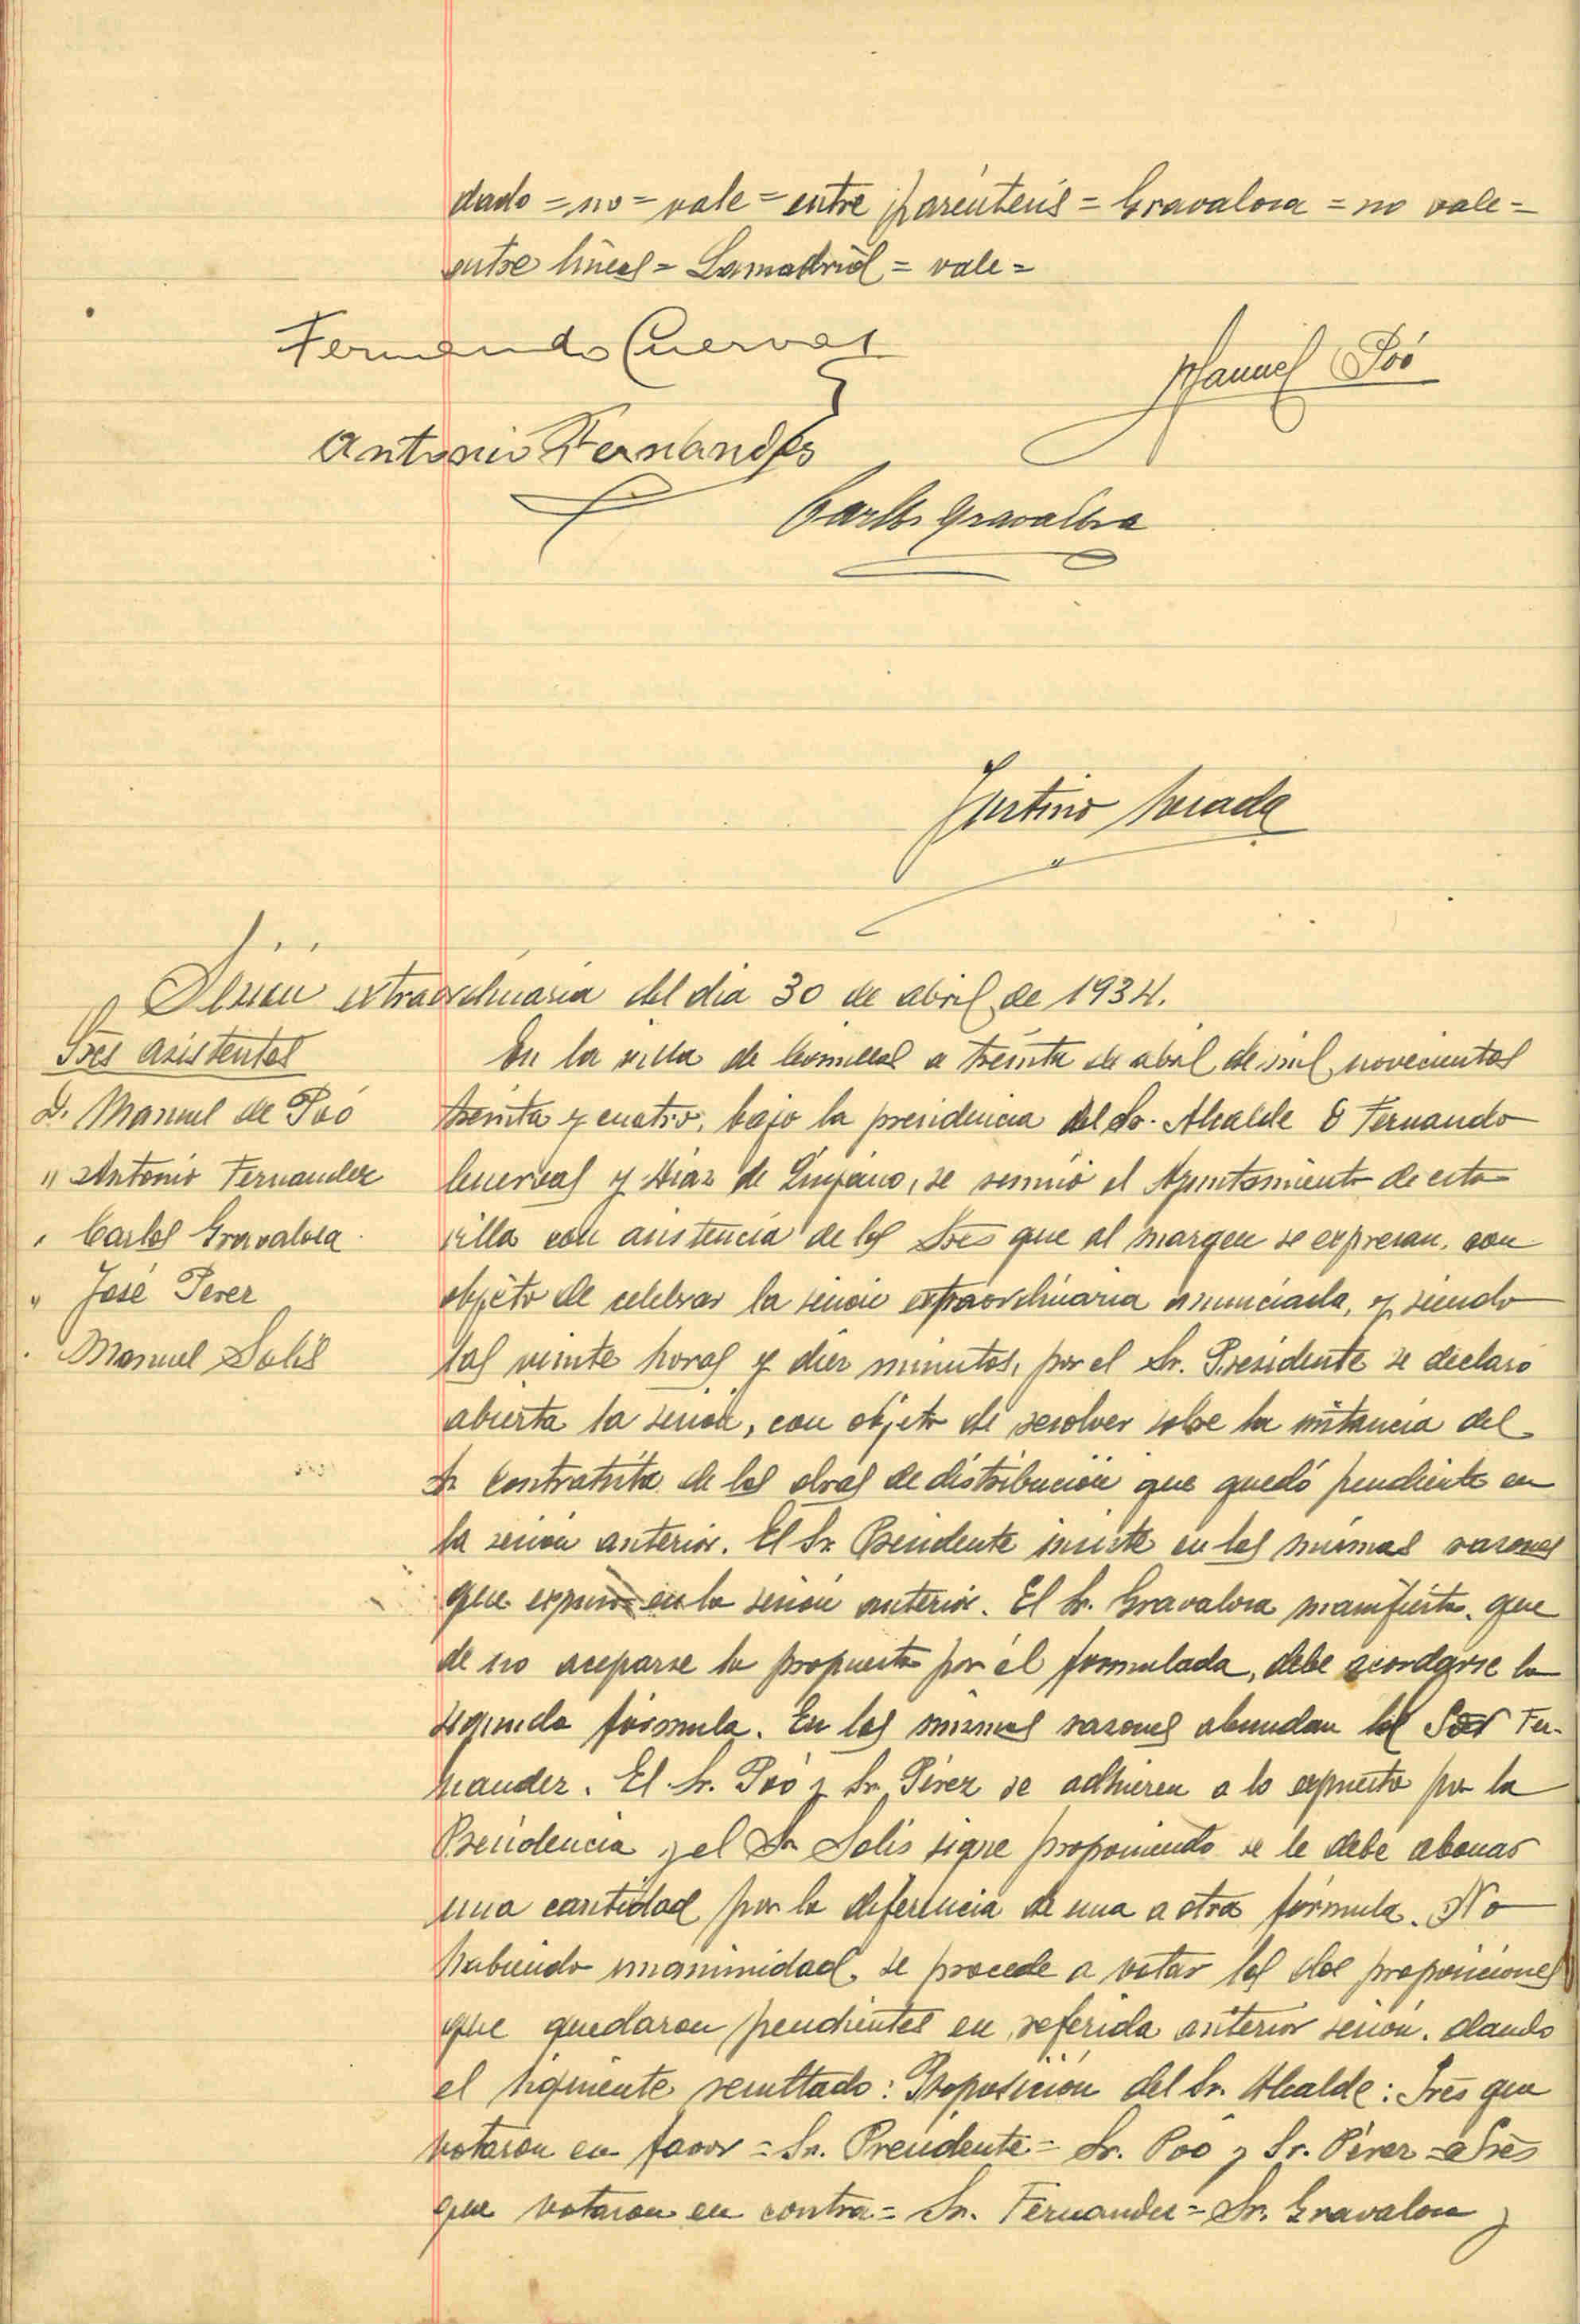 dado = no = vale = entre paréntesis = Gravalosa = no vale =
entre líneas = Lamadrid = vale =
Fernando Cuervas
Manuel Poó
Antonio Fernandes
Carlos Gravalosa
Justino
Sesión extraordinaria del dia 30 de abril de 1934.
Sres asistentes
D. Manuel de Poó
" Antonio Fernandez
" Carlos Gravalosa
" José Perez
" Manuel Solís
En la villa de Comillas a treinta de abril de mil novecientos
treinta y cuatro, bajo la presidencia del Sr. Alcalde D Fernando
Cuervas y Díaz de Quijano, se reunió el Ayuntamiento de esta
villa con asistencia de los Sres que al margen se expresan, con
objeto de celebrar la sesión extraordinaria anunciada, y siendo
las veinte horas y diez minutos, por el Sr. Presidente se declaró
abierta la sesión, con objeto de resolver sobre la instancia del
Sr Contratista de las obras de distribución que quedó pendiente en
la sesión anterior. El Sr. Presidente insiste en las mismas razones
que expuso en la sesión anterior. El Sr. Gravalosa manifiesta, que
de no aceparse la propuesta por él formulada, debe acordarse la
segunda fórmula. En las mismas razones abundan los Sr Fer-
nandez. El Sr. Poó y Sr. Pérez se adhieren a lo expuesto por la
Presidencia y el Sr Solís sigue proponiendo se le debe abonar
una cantidad por la diferencia de una a otra fórmula. No
habiendo unanimidad, se procede a votar las dos proposiciones
que quedaron pendientes en referida anterior sesión, dando
el siguiente resultado: Proposición del Sr. Alcalde: Sres que
votaron en favor = Sr. Presidente = Sr. Poó y Sr. Pérez = Sres
que votaron en contra = Sr. Fernandez = Sr. Gravalosa y